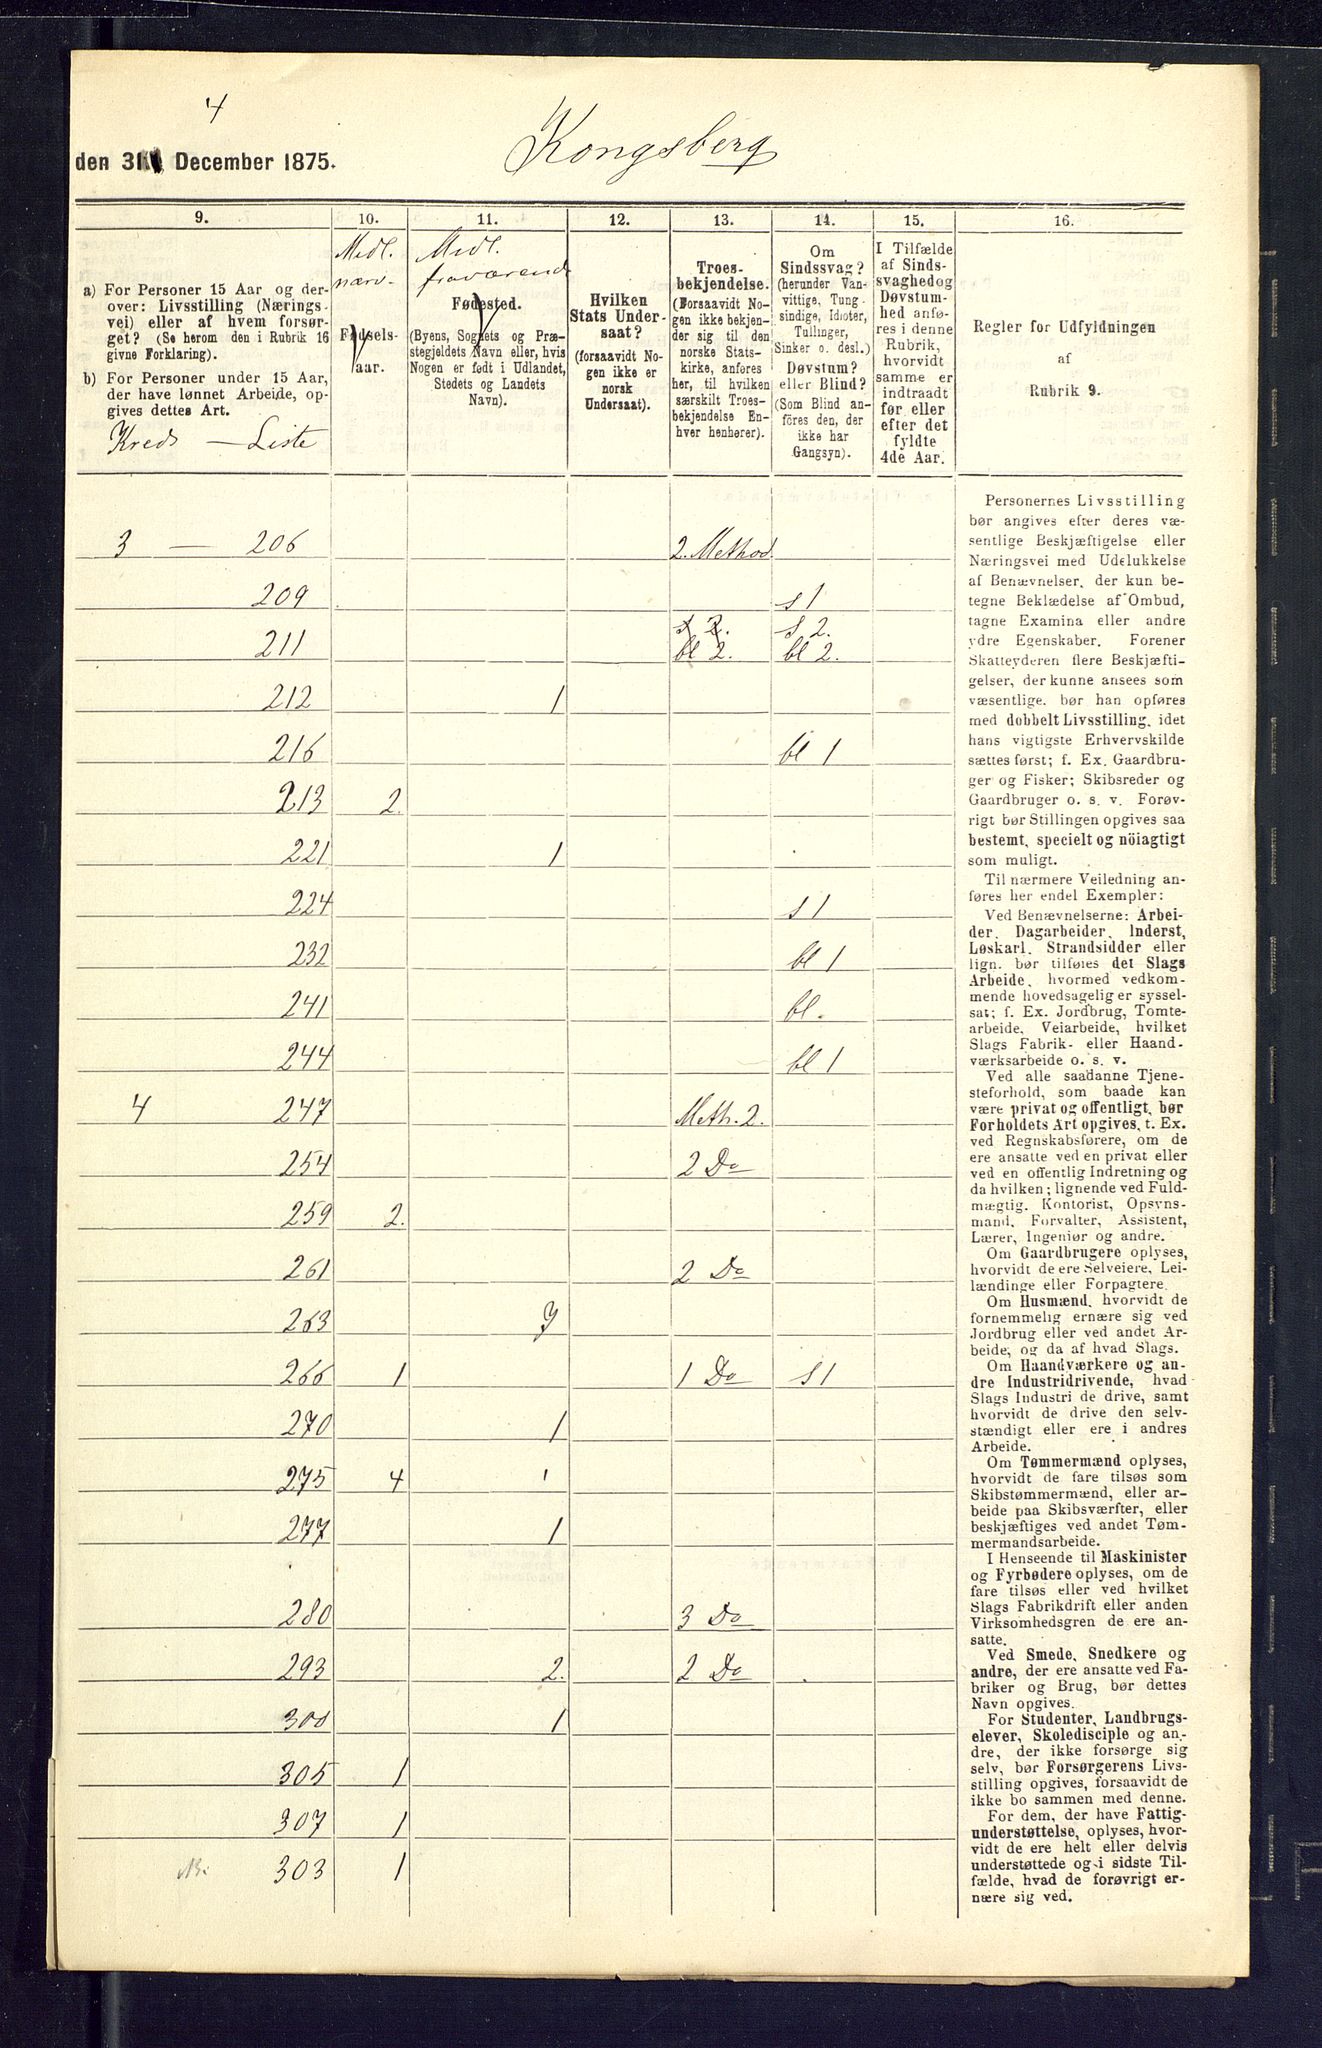 4
Kongsberg
den 31 December 1875.
9. 10. 11. 12. 13. 14. 15. 16.
a) For Personer 15 Aar og der-
over: Livsstilling (Nærings-
vei) eller af hvem forsør-
get? (Se herom den i Rubrik 16
givne Forklaring).
b) For Personer under 15 Aar,
der have lønnet Arbeide, op-
gives dettes Art.
Kreds — Liste
Midl.
nærv-
Fødsels-
aar.
Midl.
fraværende
Fødested.
(Byens, Sognets og Præ-
stegjeldets Navn eller, hvis
Nogen er født i Udlandet,
Stedets og Landets
Navn).
Hvilken
Stats Under-
saat?
(forsaavidt No-
gen ikke er
norsk
Undersaat).
Troes-
bekjendelse.
(Forsaavidt No-
gen ikke bekjen-
der sig til den
norske Stats-
kirke, anføres
her, til hvilken
særskilt Troes-
bekjendelse En-
hver henhører).
Om
Sindssvag?
(herunder Van-
vittige, Tung-
sindige, Idioter,
Tullinger,
Sinker o. desl.)
Døvstum?
eller Blind?
(Som Blind an-
føres den, der
ikke har
Gangsyn).
I Tilfælde
af Sinds-
svaghed og
Døvstum-
hed anfø-
res i denne
Rubrik,
hvorvidt
samme er
indtraadt
før eller
efter det
fyldte
4de Aar.
Regler for Udfyldningen
af
Rubrik 9.
3 — 206 2. Method.
209 s 1
211 s 2. s 2.
bl 2. bl 2.
212 1
216 bl 1
213 2.
221 1
224 s 1
232 bl 1
241 bl.
244 bl 1
4 247 Meth. 2.
254 2 Do
259 2.
261 2 Do
263 7
266 1 1 Do s1
270 1
275 4 1
277 1
280 3 Do
293 2. 2 Do
300 1
305 1
307 1
303 1
Personernes Livsstilling
bør angives efter deres væ-
sentlige Beskjæftigelse eller
Næringsvei med Udelukkelse
af Benævnelser, der kun be-
tegne Beklædelse af Ombud,
tagne Examina eller andre
ydre Egenskaber. Forener
Skatteyderen flere Beskjæfti-
gelser, der kunne ansees som
væsentlige, bør han opføres
med dobbelt Livsstilling, idet
hans vigtigste Erhvervskilde
sættes først; f. Ex. Gaardbru-
ger og Fisker; Skibsreder og
Gaardbruger o. s. v. Forøv-
rigt bør Stillingen opgives saa
bestemt, specielt og nöiagtigt
som muligt.
Til nærmere Veiledning an-
føres her endel Exempler:
Ved Benævnelserne: Arbei-
der, Dagarbeider, Inderst,
Løskarl, Strandsidder eller
lign. bør tilføies det Slags
Arbeide, hvormed vedkom-
mende hovedsagelig er syssel-
sat; f. Ex. Jordbrug, Tomte-
arbeide, Veiarbeide, hvilket
Slags Fabrik- eller Haand-
værksarbeide o. s. v.
Ved alle saadanne Tjene-
steforhold, som baade kan
være privat og offentligt, bør
Forholdets Art opgives, t. Ex.
ved Regnskabsførere, om de
ere ansatte ved en privat eller
ved en offentlig Indretning og
da hvilken; lignende ved Fuld-
mægtig, Kontorist, Opsyns-
mand, Forvalter, Assistent,
Lærer, Ingeniør og andre.
Om Gaardbrugere oplyses,
hvorvidt de ere Selveiere, Lei-
lændinge eller Forpagtere.
Om Husmænd, hvorvidt de
fornemmelig ernære sig ved
Jordbrug eller ved andet Ar-
beide, og da af hvad Slags.
Om Haandværkere og an-
dre Industridrivende, hvad
Slags Industri de drive, samt
hvorvidt de drive den selv-
stændigt eller ere i andres
Arbeide.
Om Tømmermænd oplyses,
hvorvidt de fare tilsøs som
Skibstømmermænd, eller ar-
beide paa Skibsværfter, eller
beskjæftiges ved andet Tøm-
mermandsarbeide.
I Henseende til Maskinister
og Fyrbødere oplyses, om de
fare tilsøs eller ved hvilket
Slags Fabrikdrift eller anden
Virksomhedsgren de ere an-
satte.
Ved Smede, Snedkere og
andre, der ere ansatte ved Fa-
briker og Brug, bør dettes
Navn opgives.
For Studenter, Landbrugs-
elever, Skoledisciple og an-
dre, der ikke forsørge sig
selv, bør Forsørgerens Livs-
stilling opgives, forsaavidt de
ikke bo sammen med denne.
For dem, der have Fattig-
understøttelse, oplyses, hvor-
vidt de ere helt eller delvis
understøttede og i sidste Til-
fælde, hvad de forøvrigt er-
nære sig ved.